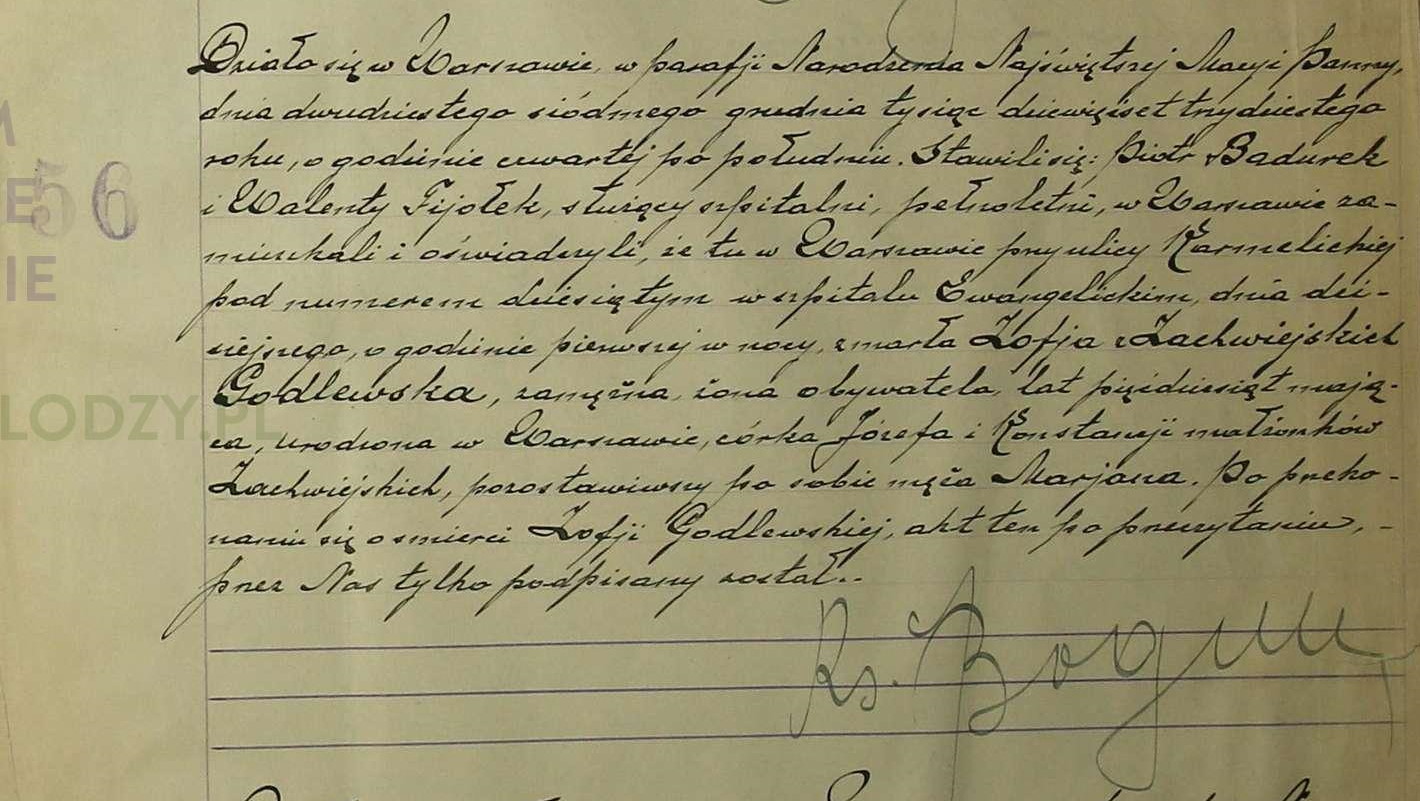 Działo się w Warszawie, w parafji Narodzenia Najświętszej Maryi Panny,
dnia dwudziestego siódmego grudnia tysiąc dziewięćset trzydziestego
roku, o godzinie czwartej po południu. Stawili się: Piotr Badurek
56
i Walenty Fijołek, służący szpitalni, pełnoletni, w Warszawie za-
mieszkali i oświadczyli, że tu w Warszawie przy ulicy Karmelickiej
IE
pod numerem dziesiątym w szpitalu Ewangelickim, dnia dzi-
siejszego, o godzinie pierwszej w nocy, zmarła Zofja z Zachwiejskich
Godlewska, zamężna, żona obywatela, lat pięćdziesiąt mają-
LODZY.PL
ca, urodzona w Warszawie, córka Józefa i Konstancji małżonków
Zachwiejskich, pozostawiwszy po sobie męża Marjana. Po przeko-
naniu się o śmierci Zofji Godlewskiej, akt ten po przeczytaniu, -
przez Nas tylko podpisany został..
Ks.